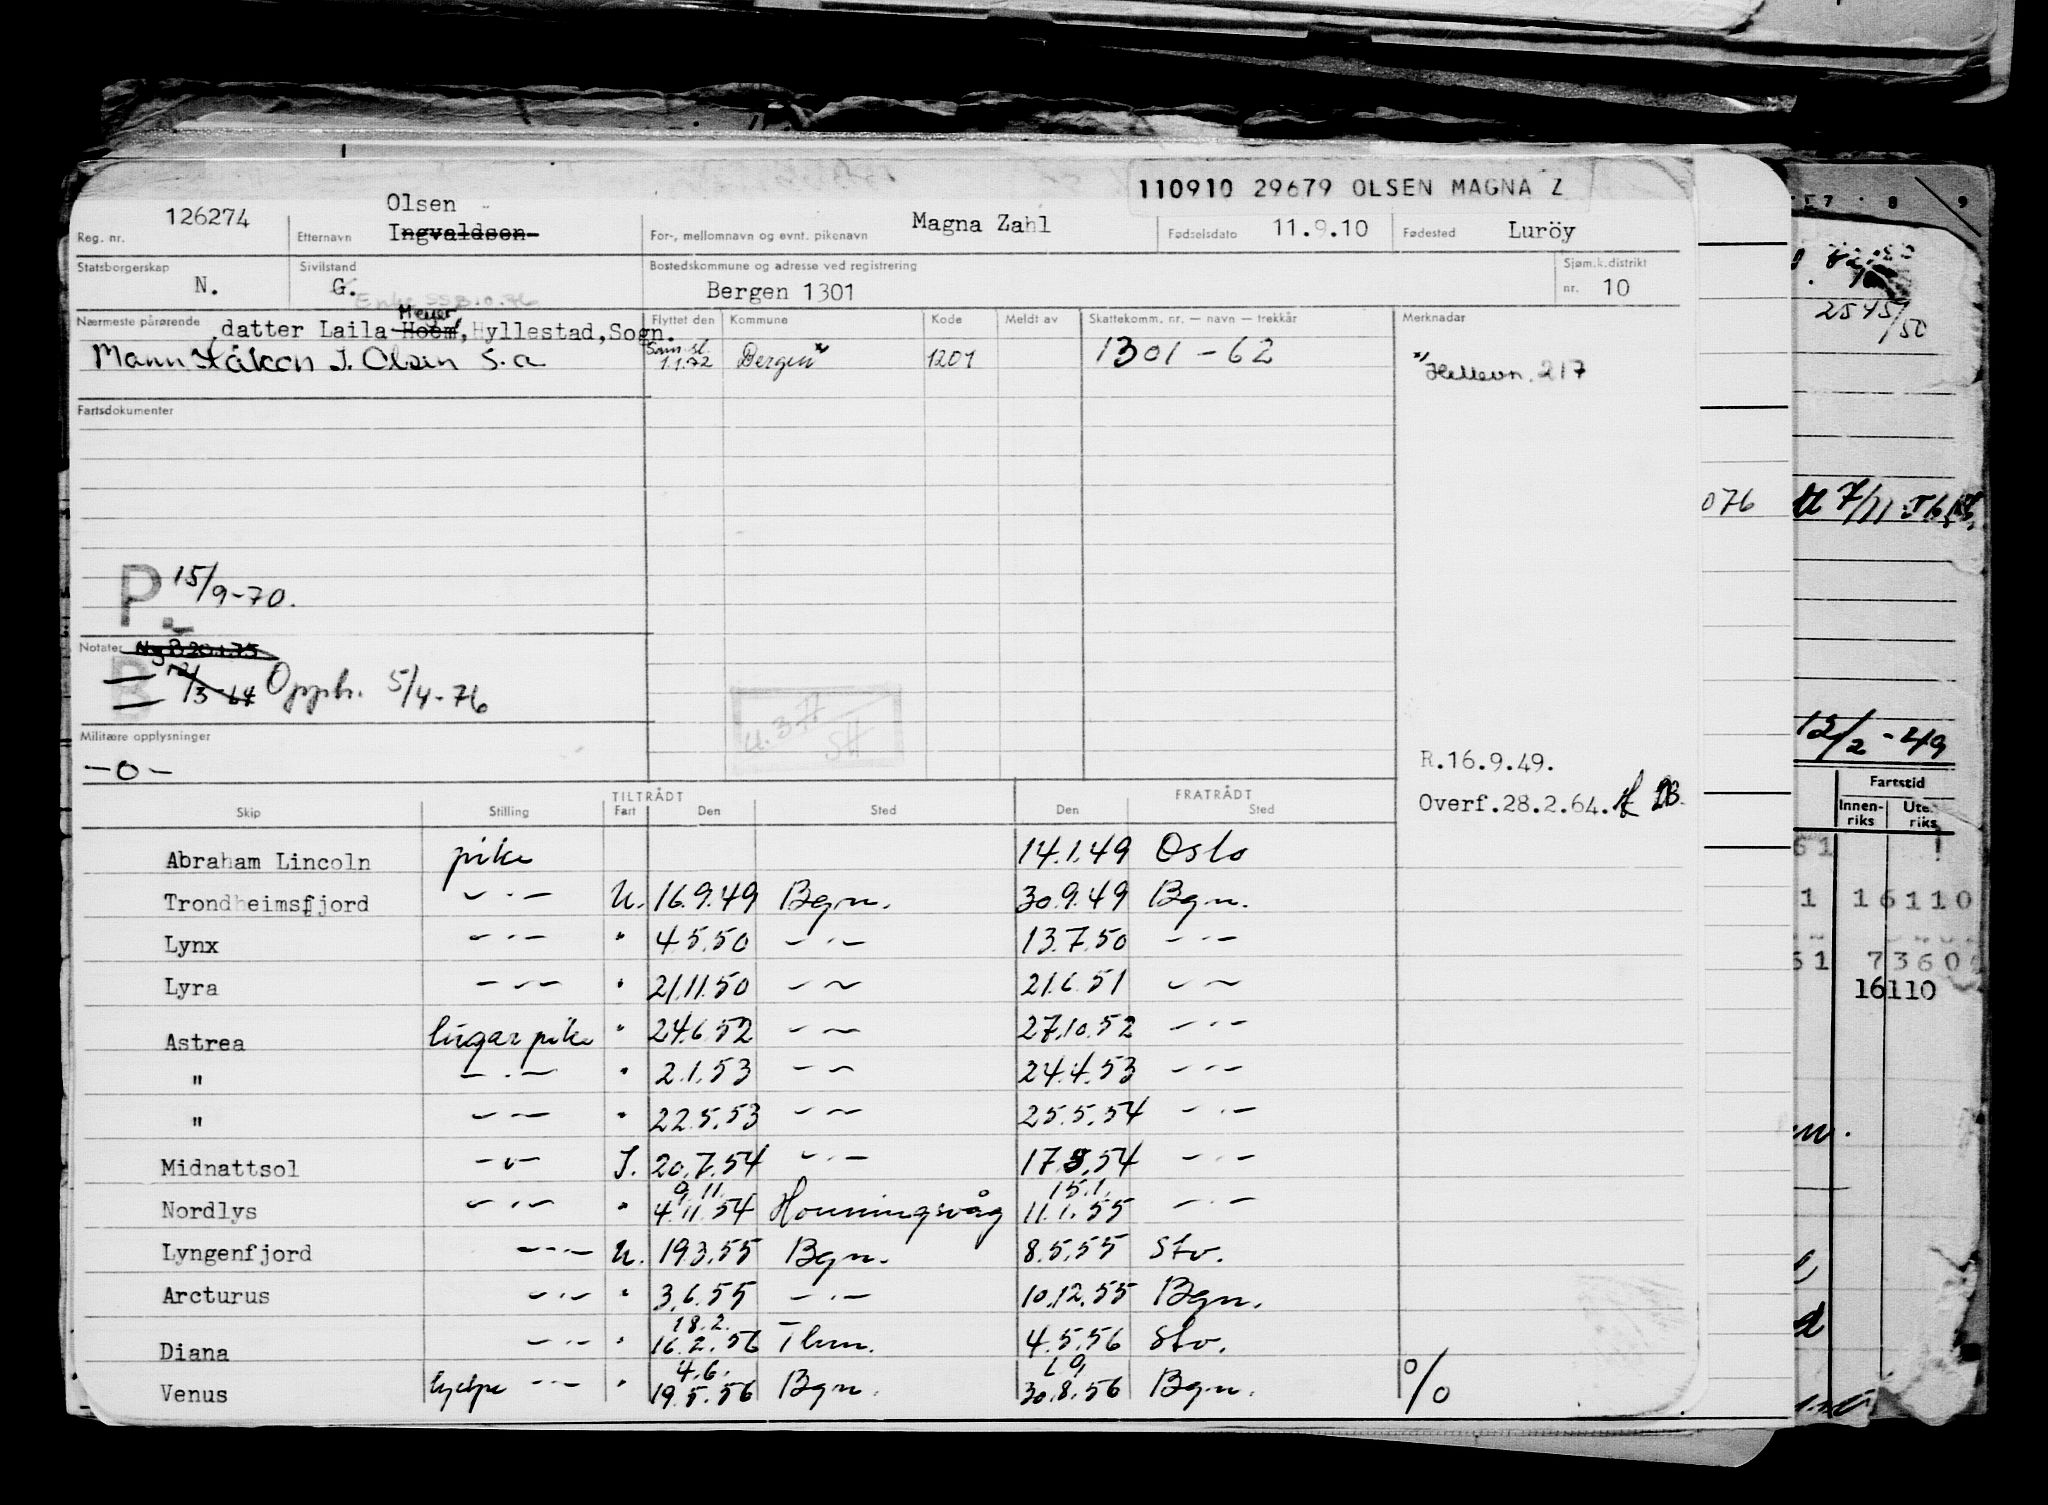 110910 29679 OLSEN MAGNA Z
Reg. nr. 126274 Etternavn Olsen Ingvaldsen For-, mellomnavn og evnt. pikenavn Magna Zahl Fødselsdato 11.9.10 Fødested Luröy
Statsborgerskap N. Sivilstand G. Bostedskommune og adresse ved registrering Bergen 1301 Sjøm.k.distrikt nr. 10
Nærmeste pårørende , datter Laila Hoem Meyer, Hyllestad, Sogn.
Mann Håkon J. Olsen S.a
Flyttet den Kommune Kode Meldt av Skattekomm. nr. — navn — trekkår Merknader
1.1.72 Bergen 1201 1301 - 62 217
Fartsdokumenter
P 15/9-70.
Notater
B 12/3-64 Opph. 5/4-76
Militære opplysninger
-0-
R.16.9.49.
Overf.28.2.64.
TILTRÅDT FRATRÅDT
Skip Stilling Fart Den Sted Den Sted
Abraham Lincoln pike 14.1.49 Oslo
Trondheimsfjord -"- U. 16.9.49 Bgn. 30.9.49 Bgn.
Lynx -"- " 4.5.50 -"- 13.7.50 -"-
Lyra -"- " 21.11.50 -"- 21.6.51 -"-
Astrea lugarpike " 24.6.52 -"- 27.10.52 -"-
" -"- " 2.1.53 -"- 24.4.53 -"-
" -"- " 22.5.53 -"- 25.5.54 -"-
Midnattsol -"- I. 20.7.54 -"- 17.8.54 -"-
9.11. 15.1.
Nordlys -"- " 4.11.54 Honningsvåg 11.1.55 -"-
Lyngenfjord -"- U. 19.3.55 Bgn. 8.5.55 Stv.
Arcturus -"- " 3.6.55 -"- 10.12.55 Bgn.
18.2.
Diana -"- " 16.2.56 Thm. 4.5.56 Stv.
4.6.
Venus hjelpe -"- " 19.5.56 Bgn. 30.8.56 Bgn. %
7 8 9
2545/50
076
7/11
12/2-49
Fartstid
Innenriks Uteriks
61
1 16110
61 7360
16110